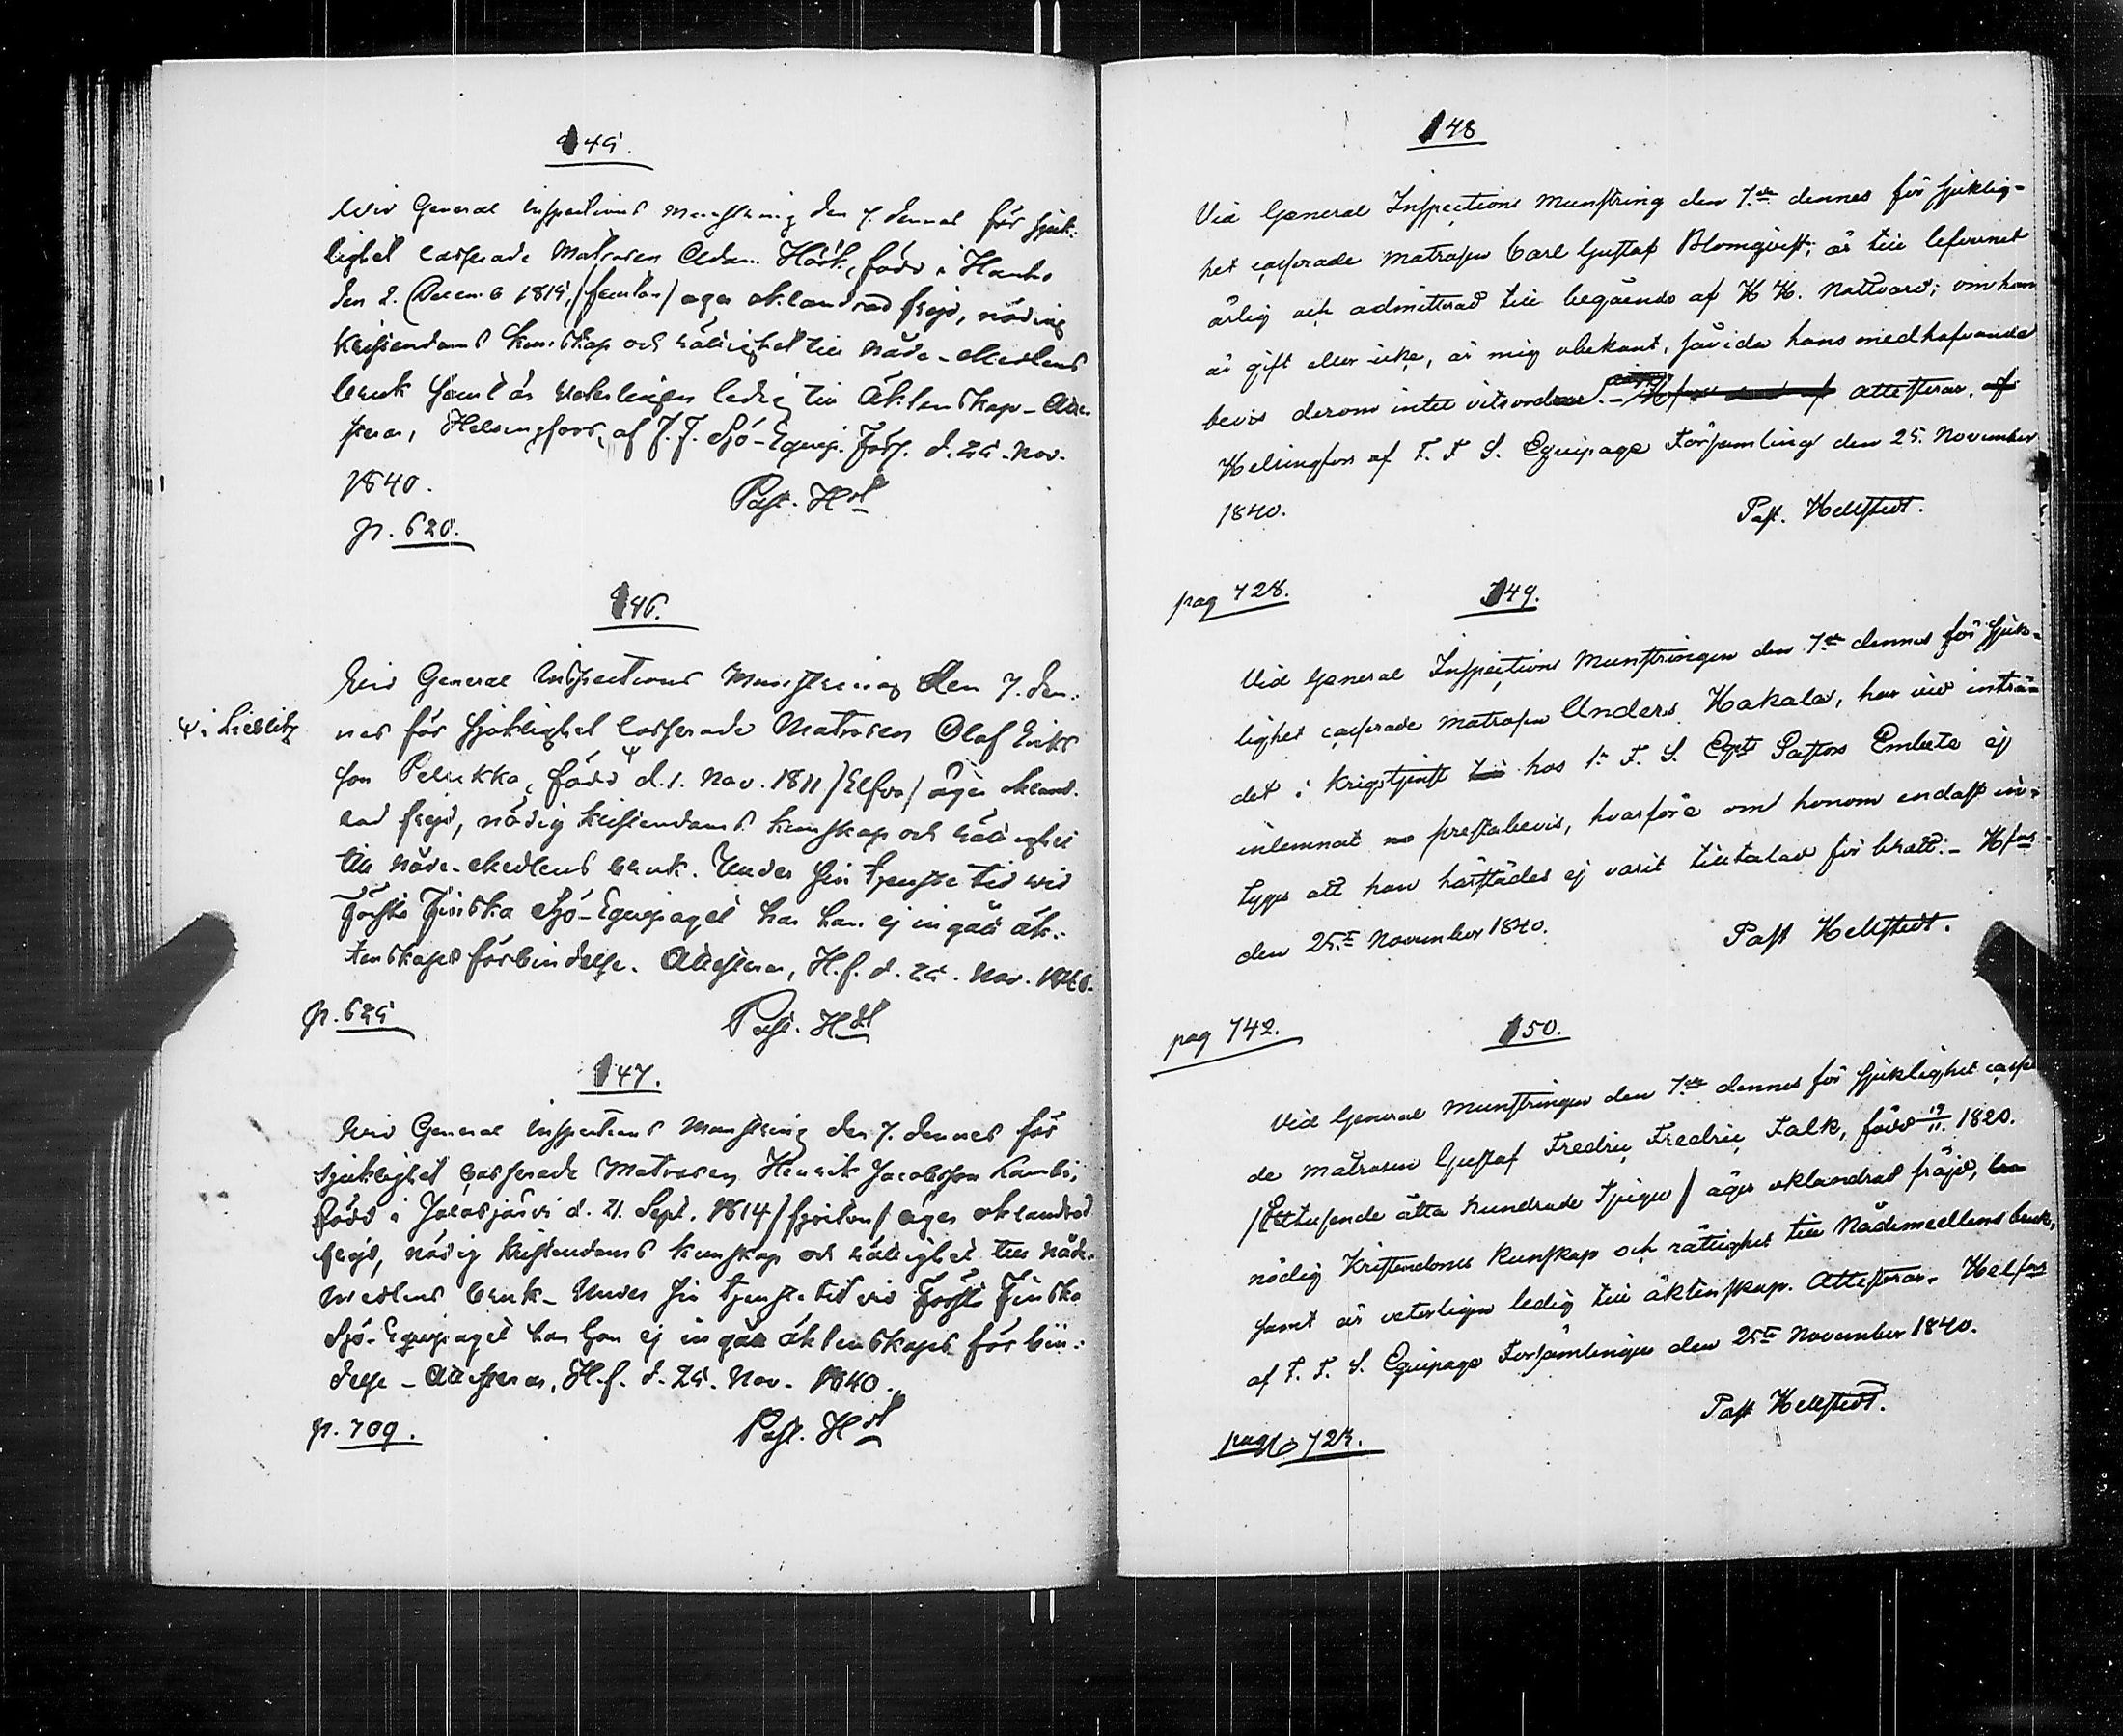 145.
Wid General Inspections Munstring den 7. dennes för sjuk-
lighet casserade Matrosen Adam Höök, född i Hauho
den 2. Decemb 1815, /femton/ äger oklandrad frejd, nödig
Kristendoms kunskap och rättighet till Nåde-Medlens
bruk samt är veterligen ledig till Äktenskap- Atte-
sterar, Helsingfors, af F. F. Sjö-Equip. Förs. d. 25. Nov.
1840.
Past. H dt
p. 620.
146.
Wid General Inspections Munstring den 7. den-
nes för sjuklighet casserade Matrosen Olof Eriks
son Pelukka, född d. 1. Nov. 1811 /Elfva/ äger okland-
rad frejd, nödig kristendoms kunskap och rättighet
till Nåde-Medlens bruk. Under sin tjenste tid vid
Första Finska Sjö-Equipaget har han ej ingått äk-
tenskaps förbindelse. Attesterar, H.f. d. 25. Nov. 1840.
i Lieblitz
p. 625
Past. H dt
147.
Wid General Inspections Munstring den 7. dennes för
sjuklighet casserade Matrosen Henrik Jacobsson Lambi,
född i Jalasjärvi d. 21. Sept. 1814 /fjorton/ äger oklandrad
frejd, nödig kristendoms kunskap och rättighet till Nåde-
medlens bruk- Under sin tjenste tid vid Första Finska
Sjö-Equipaget har han ej ingått äktenskaps förbin-
delse - Attesterar, H.f. d. 25. Nov. 1840.
p. 709.
Past. H dt
148
Vid General Inspections Munstring den 7de dennes för sjuklig-
het casserade matrosen Carl Gustaf Blomqvist, är till lefvernet
ärlig och admitterad till begående af H H. Nattvard; om han
är gift eller icke, är mig obekant, såvida hans medhafvande
bevis derom intet vitsordar. - attesterar.
Helsingfors af F. F S. Equipage Församling den 25. November
1840.
Past. Hellstedt.
pag 728.
149.
Vid General Inspections Munstringen den 7de dennes för sjuk-
lighet casserade matrosen Anders Hakala, har vid inträ-
det i krigstjenst hos 1a F. S. Eqts Pastors Embete ej
inlemnat prestabevis, hvarföre om honom endast in-
tygas att han härstädes ej varit tilltalad för brott. - Hfors
den 25te November 1840.
Past Hellstedt.
pag 742.
150.
Vid General Munstringen den 7de dennes för sjuklighet casse
de matrosen Gustaf Fredric Fredric Falk, född 19/11 1820.
/Ettusende åtta hundrade tjugu/ äger oklandrad fräjd,
nödig Kristendoms kunskap och rättighet till Nådemedlens bruk,
samt är veterligen ledig till äktenskap. Attesterar. Helfors
af F. F. S. Equipage Församlingen den 25te November 1840.
Past Hellstedt.
pag 725.